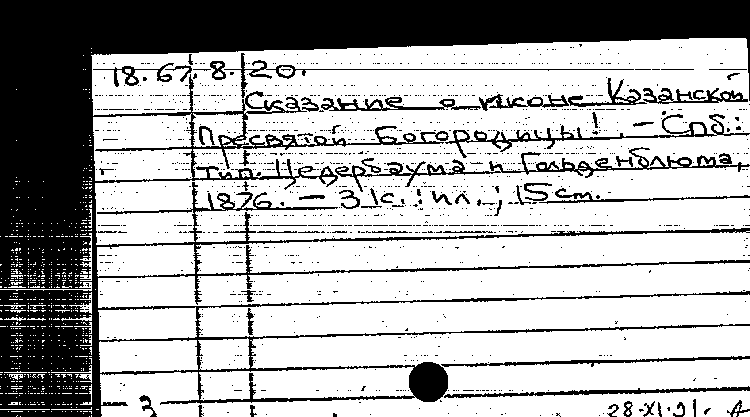 18.67.8.20.
Сказание о иконе Казанской
Пресвятой Богородицы! - Спб.:
тип. Цедербаума и Гольденблюма,
1876. - 31с. : ил. ; 15 cm.
3 28.XI.91.